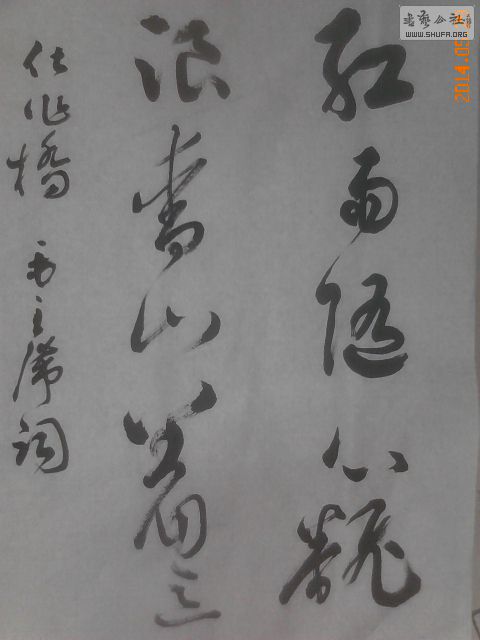 红雨随心翻
浪青山着意
化作橋 毛主席词
書藝公社
WWW.SHUFA.ORG
2014.05